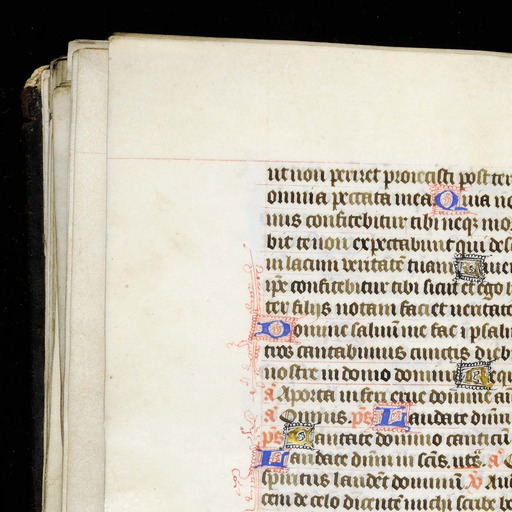 ut non periret proiecisti post ter
omnia peccata mea Quia no
nus confitebitur tibi neqz mo
bit te non expectabunt qui des
in lacum veritatē tuam Viue
ip̄e confitebitur tibi sicut et ego h
ter filijs notam faciet veritatē
Domine saluū me fac ⁊ psal
tros cantabimus cunctis dieb
nostre in domo domini Req
a Aporta inferi erue domine a
a Omnis. ps Laudate dn̄m
ps Cantate domino canticū
Laudate dn̄m in sc̄is. ut s̄. a O
spiritus laudet dominum. V Au
cem de celo dicentē michi scribe be